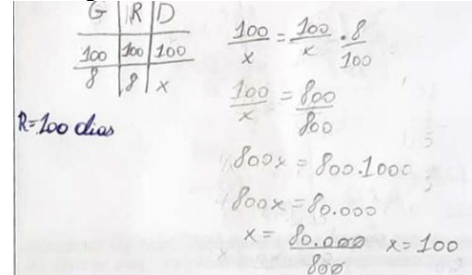 G | R | D
100 | 100 | 100
8 | 8 | x
R=100 dias
100/x = 100/x . 8/100
100/x = 800/800
800x = 800.1000
800x = 80.000
x = 80.000/800 x = 100